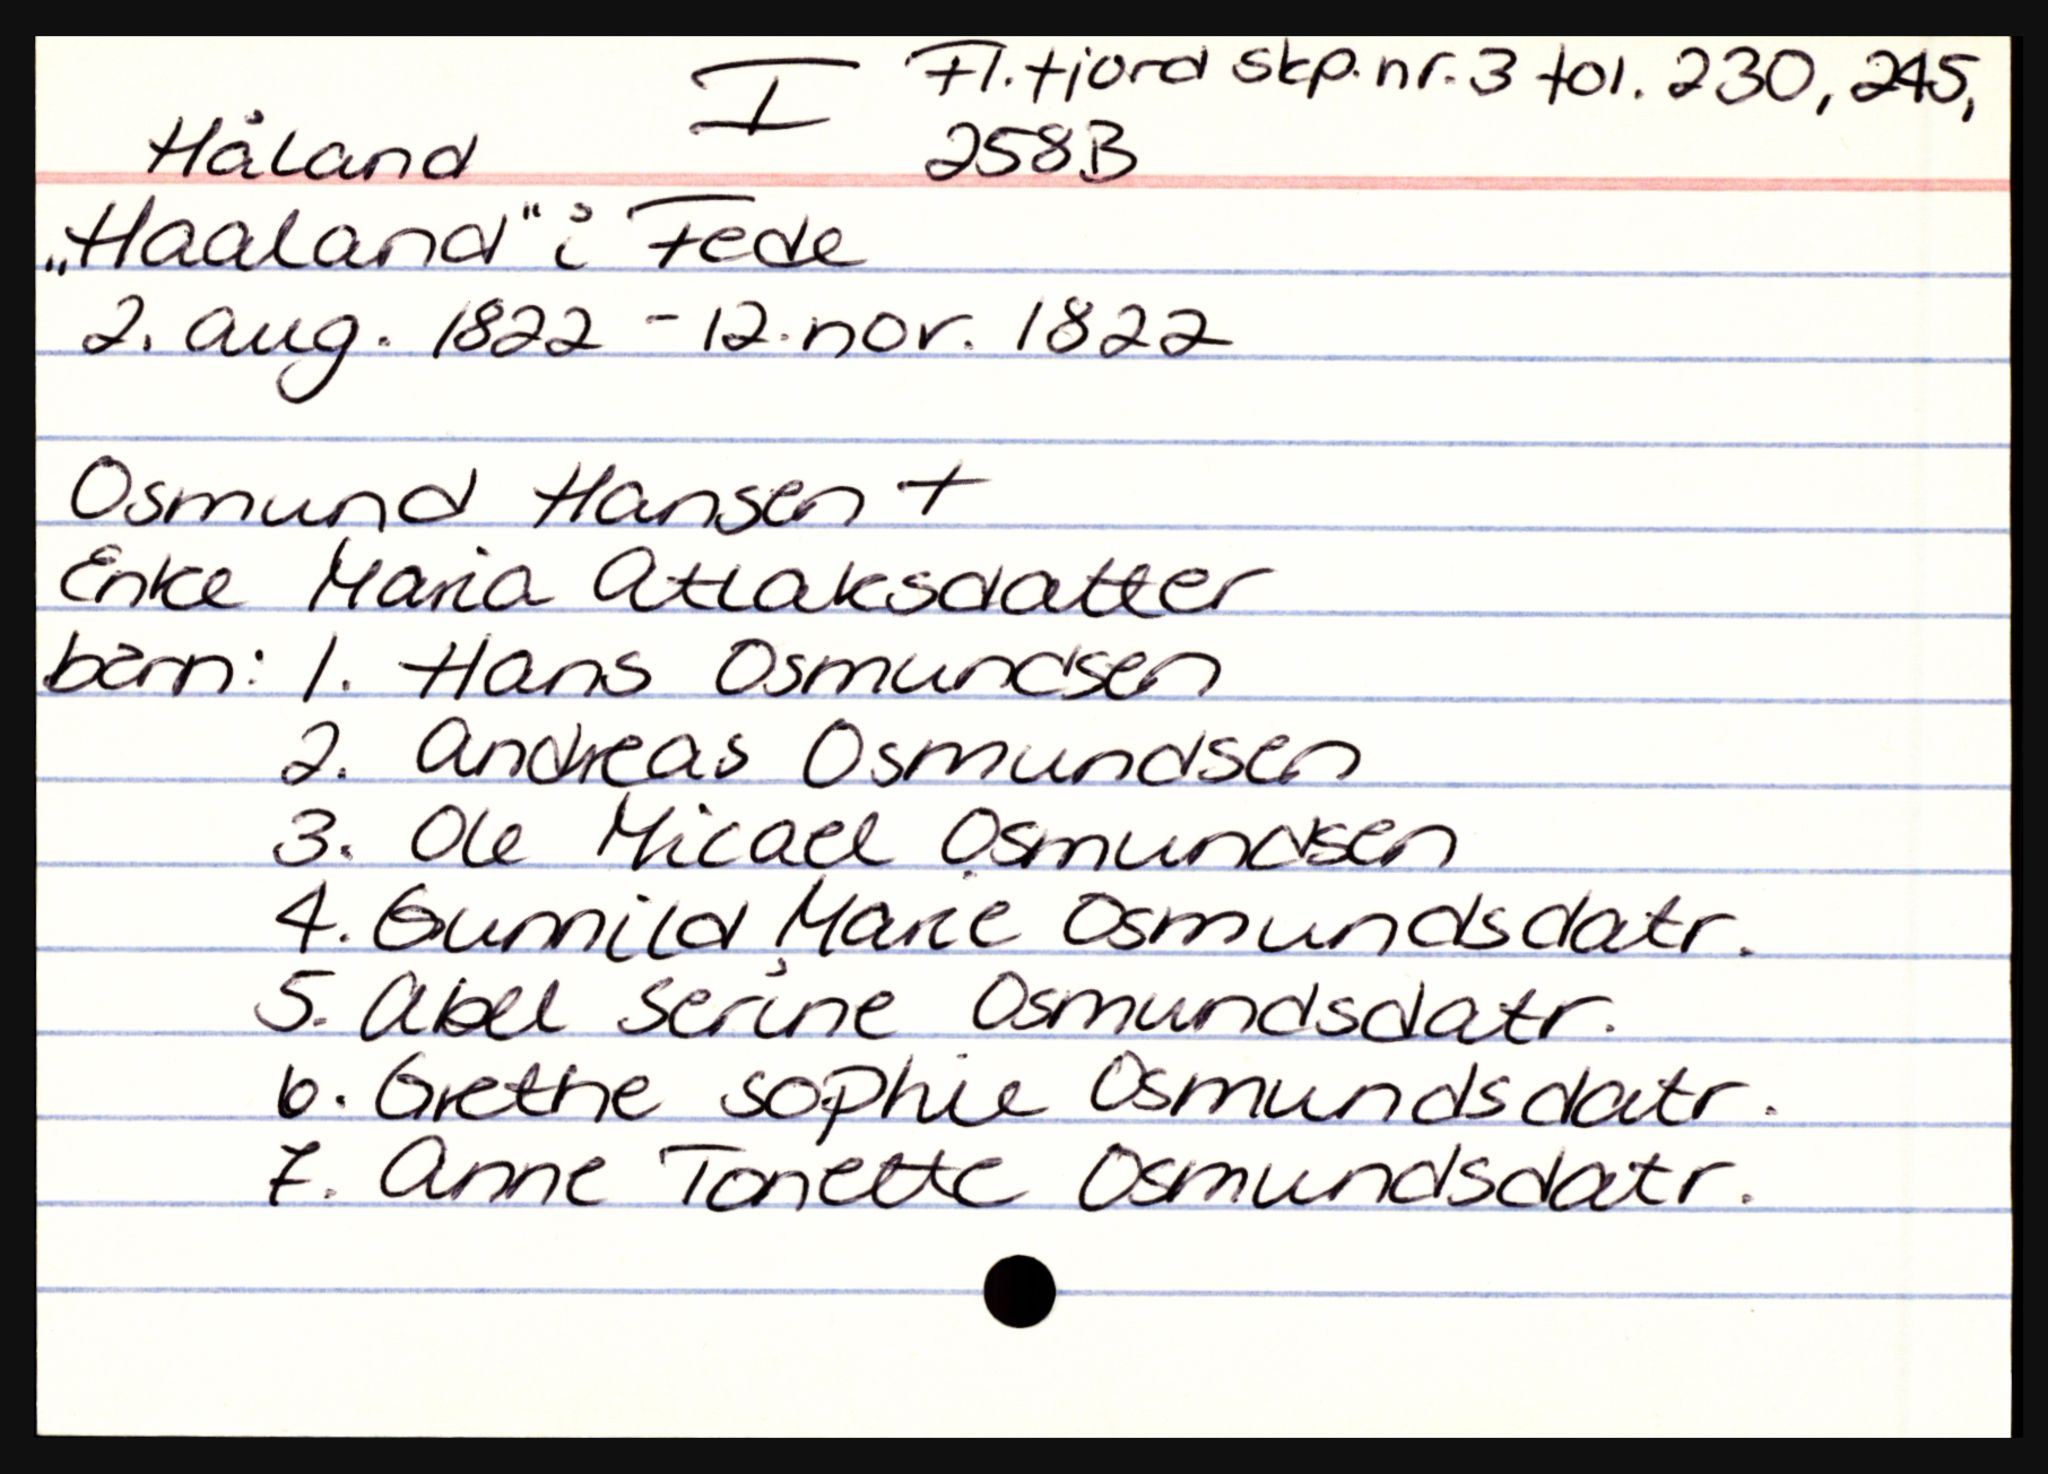 I Fl.fjord skp.nr.3 fol. 230, 245,
Håland 258B
„Haaland“ i Fede
2. aug. 1822 - 12.nov. 1822
Osmund Hansen +
Enke Maria Atlaksdatter
barn: 1. Hans Osmundsen
2. Andreas Osmundsen
3. Ole Micael Osmundsen
4. Gunnild Marie Osmundsdatr.
5. Abel Serine Osmundsdatr.
6. Grethe Sophie Osmundsdatr.
7. Anne Tonette Osmundsdatr.